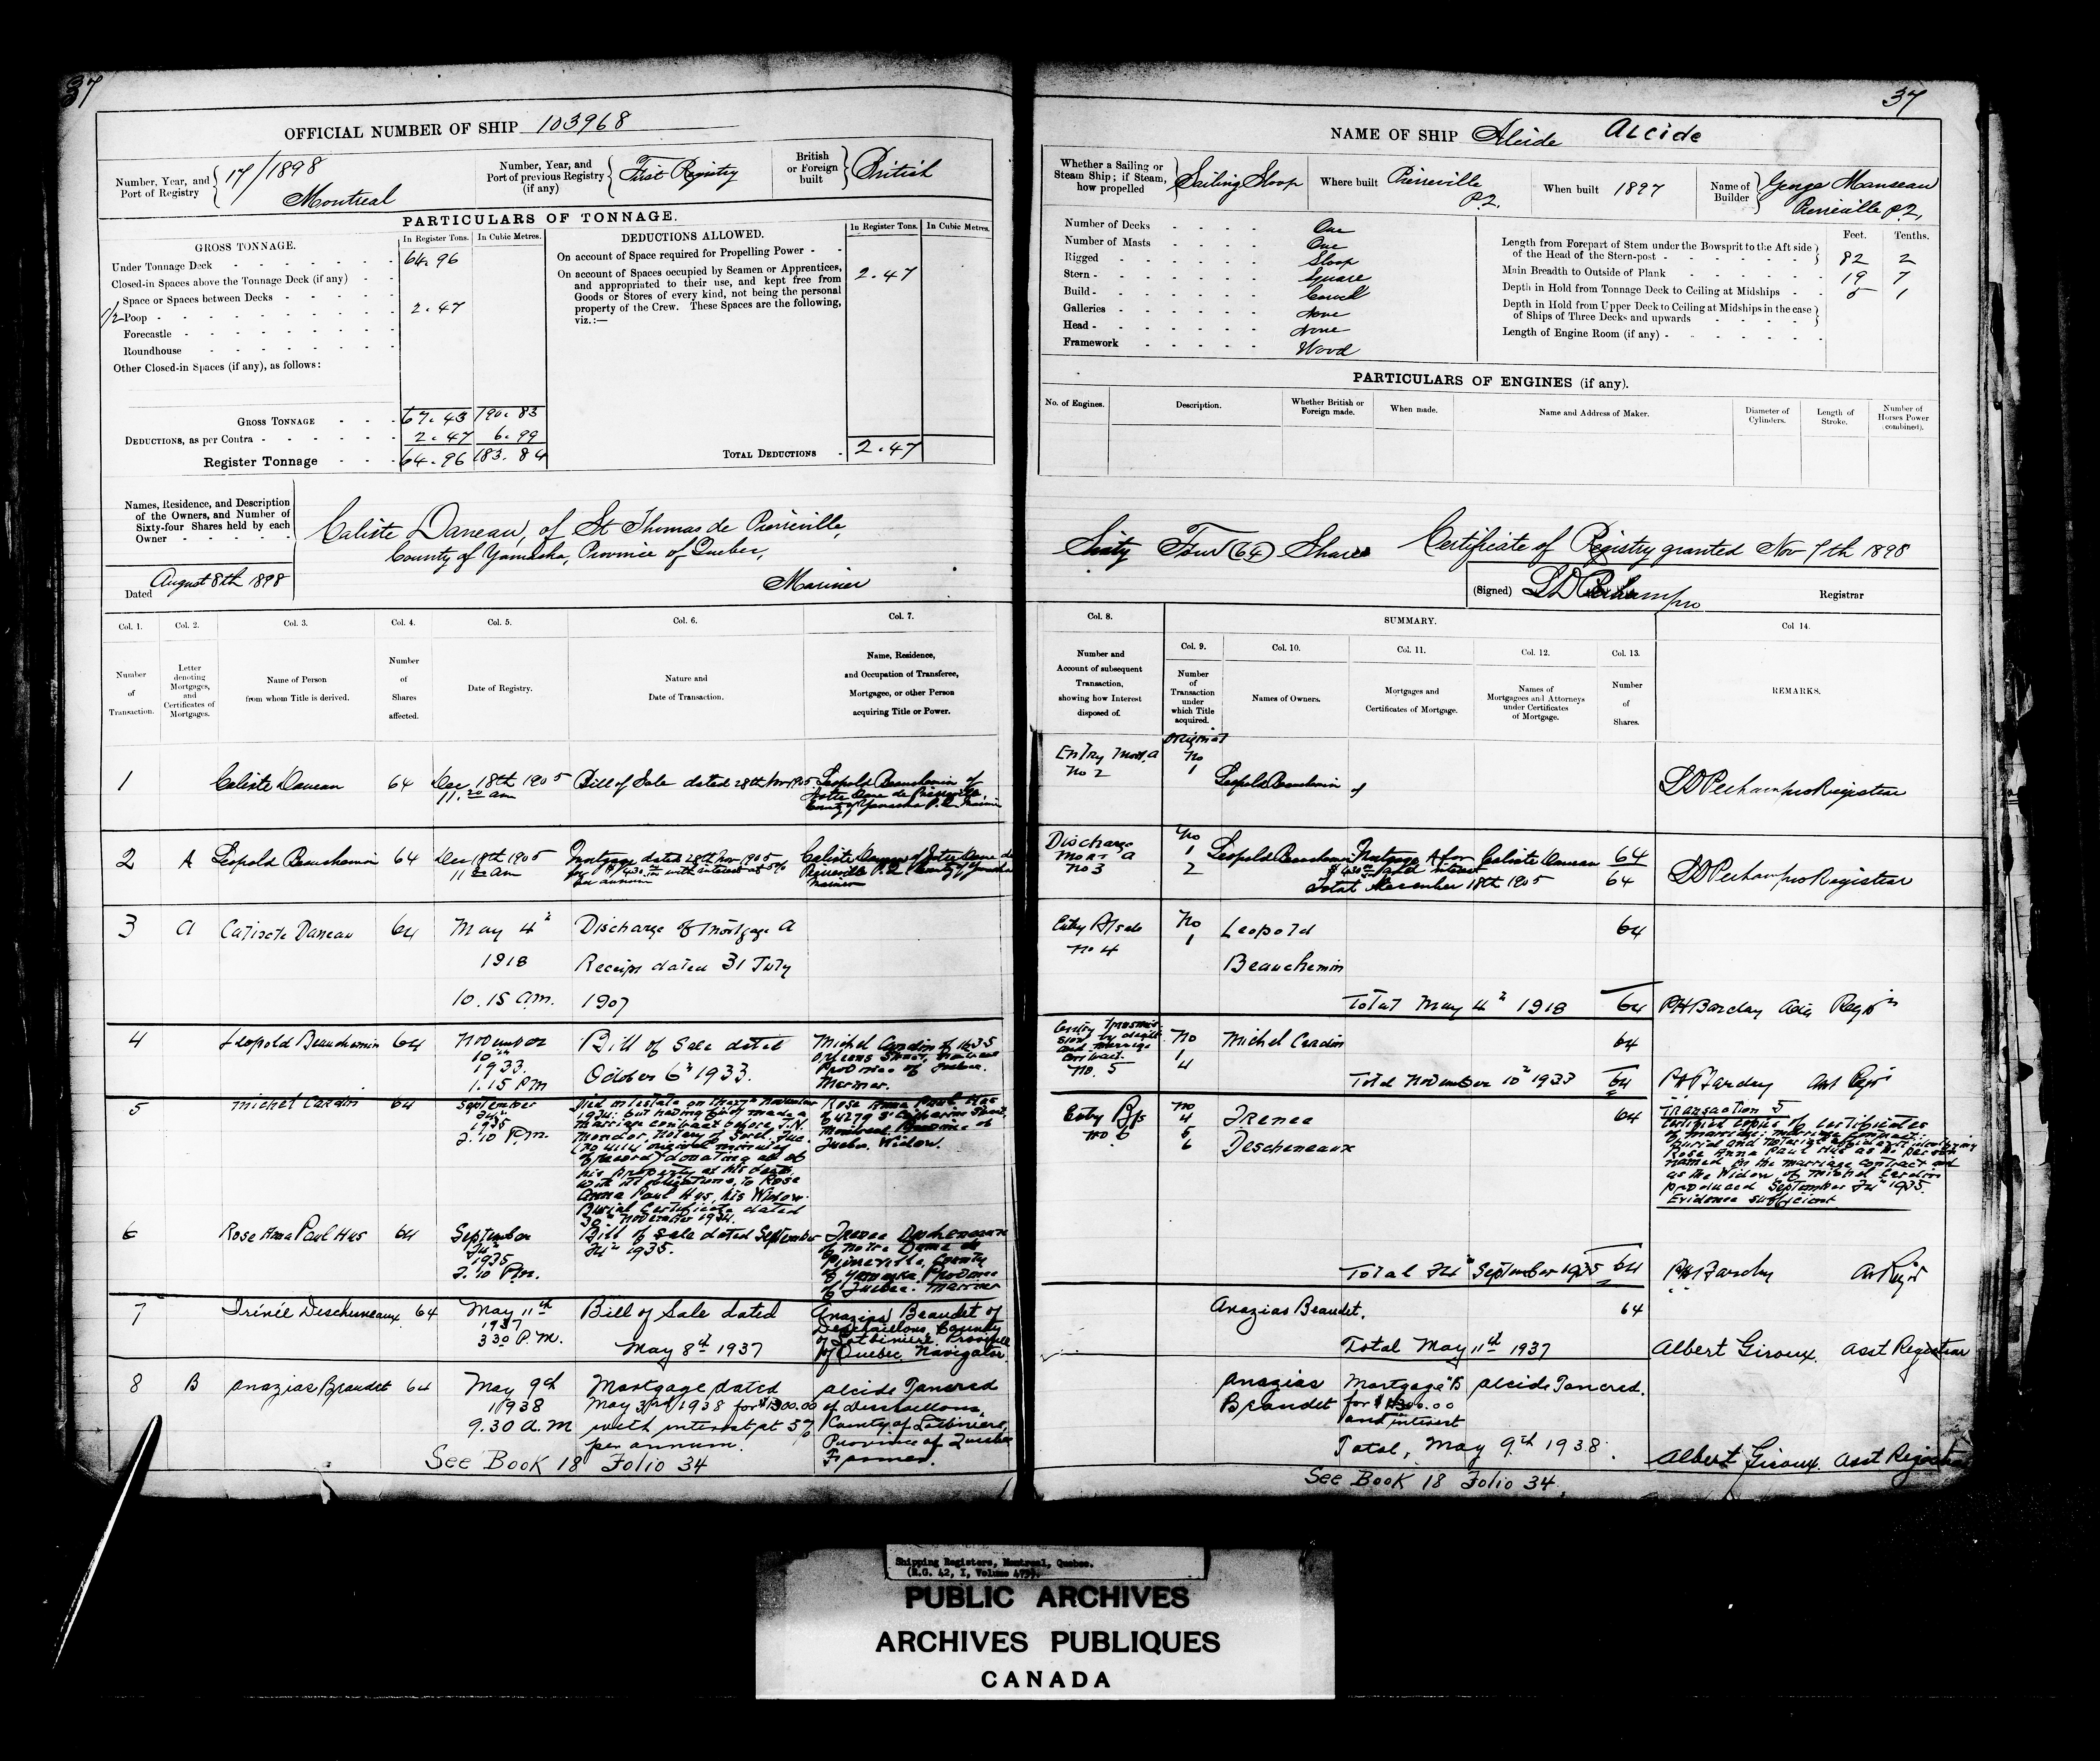 37
OFFICIAL NUMBER OF SHIP 103968
Number, Year, and Port of Registry 17/1898 Montreal
Number, Year, and Port of previous Registry (if any) First Registry
British or Foreign built British
PARTICULARS OF TONNAGE.
GROSS TONNAGE.
In Register Tons. In Cubic Metres.
Under Tonnage Deck 64.96
Closed-in Spaces above the Tonnage Deck (if any)
Space or Spaces between Decks
1/2 Poop 2.47
Forecastle
Roundhouse
Other Closed-in Spaces (if any), as follows:
GROSS TONNAGE 67.43 190.83
DEDUCTIONS, as per Contra 2.47 6.99
Register Tonnage 64.96 183.84
DEDUCTIONS ALLOWED.
In Register Tons. In Cubic Metres.
On account of Space required for Propelling Power
On account of Spaces occupied by Seamen or Apprentices, 2.47
and appropriated to their use, and kept free from
Goods or Stores of every kind, not being the personal
property of the Crew. These Spaces are the following,
viz.:—
TOTAL DEDUCTIONS 2.47
Names, Residence, and Description
of the Owners, and Number of
Sixty-four Shares held by each
Owner
Caliste Daneau, of St Thomas de Pierreville,
County of Yamaska, Province of Quebec,
Mariner
Dated August 8th 1898
Col. 1. Col. 2. Col. 3. Col. 4. Col. 5. Col. 6. Col. 7.
Number of Transaction.
Letter denoting Mortgages, and Certificates of Mortgages.
Name of Person from whom Title is derived.
Number of Shares affected.
Date of Registry.
Nature and Date of Transaction.
Name, Residence, and Occupation of Transferee, Mortgagee, or other Person acquiring Title or Power.
1 Caliste Daneau 64 Dec 18th 1905 Bill of Sale dated 28th Nov 1905 Leopold Beauchemin of
11.20 am Notre Dame de Pierreville
County of Yamaska P.Q. Mariner
2 A Leopold Beauchemin 64 Dec 18th 1905 Mortgage dated 28th Nov 1905 Caliste Daneau of Notre Dame de
11 am with interest at 5% Pierreville P.Q. County of Yamaska
per annum Mariner
3 A Calixte Daneau 64 May 4th Discharge of Mortgage A
1918 Receipt dated 31 July
10.15 a.m. 1907
4 Leopold Beauchemin 64 November Bill of Sale dated Michel Cardin of 1635
10th October 6th 1933. Orleans Street, Montreal
1933. Province of Quebec.
1.15 PM Mariner.
5 Michel Cardin 64 September Died intestate on the November Rose Anna Paul Hus
24th 1934: but having firstly made a of 4279 St Catherine Street
1935 marriage contract before J.N. Montreal, Province of
2.10 P.M. Mondor, Notary of Sorel, Que. Quebec, Widow.
(No 4114 original minutes
of record) donating all of
his property at his death,
with its obligations, to Rose
Anna Paul Hus, his Widow.
Burial Certificate dated
30th November 1934.
6 Rose Anna Paul Hus 64 September Bill of Sale dated September Irenee Descheneaux
24th 24th 1935. of Notre Dame de
1935 Pierreville, County
2.10 P.m. of Yamaska, Province
of Quebec. Mariner
7 Irénée Descheneaux 64 May 11th Bill of Sale dated Anazias Beaudet of
1937 May 8th 1937 Deschaillons County
3.30 P.M. of Lotbiniere, Province
of Quebec, Navigator
8 B Anazias Beaudet 64 May 9th Mortgage dated Alcide Tancred
1938 May 3rd 1938 for $1300.00 of Deschaillons,
9.30 A.M with interest at 5% County of Lotbiniere,
per annum. Province of Quebec
Farmer.
See Book 18 Folio 34
37
NAME OF SHIP Alcide ALCIDE
Whether a Sailing or Steam Ship; if Steam, how propelled Sailing Sloop
Where built Pierreville P.Q.
When built 1897
Name of Builder George Manseau Pierreville P.Q.
Number of Decks One
Number of Masts One
Rigged Sloop
Stern Square
Build Carvel
Galleries None
Head None
Framework Wood
Feet. Tenths.
Length from Forepart of Stem under the Bowsprit to the Aft side of the Head of the Stern-post 82 2
Main Breadth to Outside of Plank 19 7
Depth in Hold from Tonnage Deck to Ceiling at Midships 5 1
Depth in Hold from Upper Deck to Ceiling at Midships in the case of Ships of Three Decks and upwards
Length of Engine Room (if any)
PARTICULARS OF ENGINES (if any).
No. of Engines. Description. Whether British or Foreign made. When made. Name and Address of Maker. Diameter of Cylinders. Length of Stroke. Number of Horses Power (combined).
Sixty Four (64) Shares Certificate of Registry granted Nov 7th 1898
(Signed) Registrar
Col. 8. SUMMARY. Col 14.
Col. 9. Col. 10. Col. 11. Col. 12. Col. 13.
Number and Account of subsequent Transaction, showing how Interest disposed of.
Number of Transaction under which Title acquired.
Names of Owners.
Mortgages and Certificates of Mortgage.
Names of Mortgagees and Attorneys under Certificates of Mortgage.
Number of Shares.
REMARKS.
Entry Mort. A Original
No 2 No 1 Leopold Beauchemin of Registrar
Discharge No
Mort A 1 Leopold Beauchemin Mortgage A for Caliste Daneau 64
No 3 2 and interest
Total December 18th 1905 64 Registrar
Entry B/sale No Leopold 64
No 4 1 Beauchemin
Total May 4th 1918 64 PH Barclay Regr
Entry transmission by death and marriage contract. No Michel Cardin 64
No. 5 1
4 Total November 10th 1933 64 PH Barclay Ast Regr
Entry B/s No Irenee 64
No 6 4 Descheneaux
5
6
Transaction 5
Certified copies of certificates
of marriage; marriage contract;
burial and notarial affidavit identifying
Rose Anna Paul Hus as the person
named in the marriage contract and
as the Widow of Michel Cardin
produced September 24th 1935.
Evidence sufficient.
Total 24th September 1935 64 PH Barclay Ast Regr
Anazias Beaudet. 64
Total May 11th 1937 Albert Giroux. Asst Registrar
Anazias Mortgage "B" Alcide Tancred.
Beaudet for $1300.00
and interest
Total, May 9th 1938. Albert Giroux. Asst Registrar
See Book 18 Folio 34.
Shipping Registers, Montreal, Quebec.
(R.G. 42, I, Volume
PUBLIC ARCHIVES
ARCHIVES PUBLIQUES
CANADA